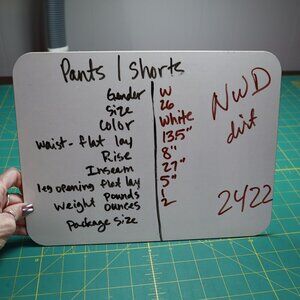 Pants / shorts
Gender W
Size 26
Color White
waist - flat lay 13.5"
Rise 8"
Inseam 27"
leg opening flat lay 5"
Weight Pounds 1
ounces 2
Package Size
NWD
dirt
2422